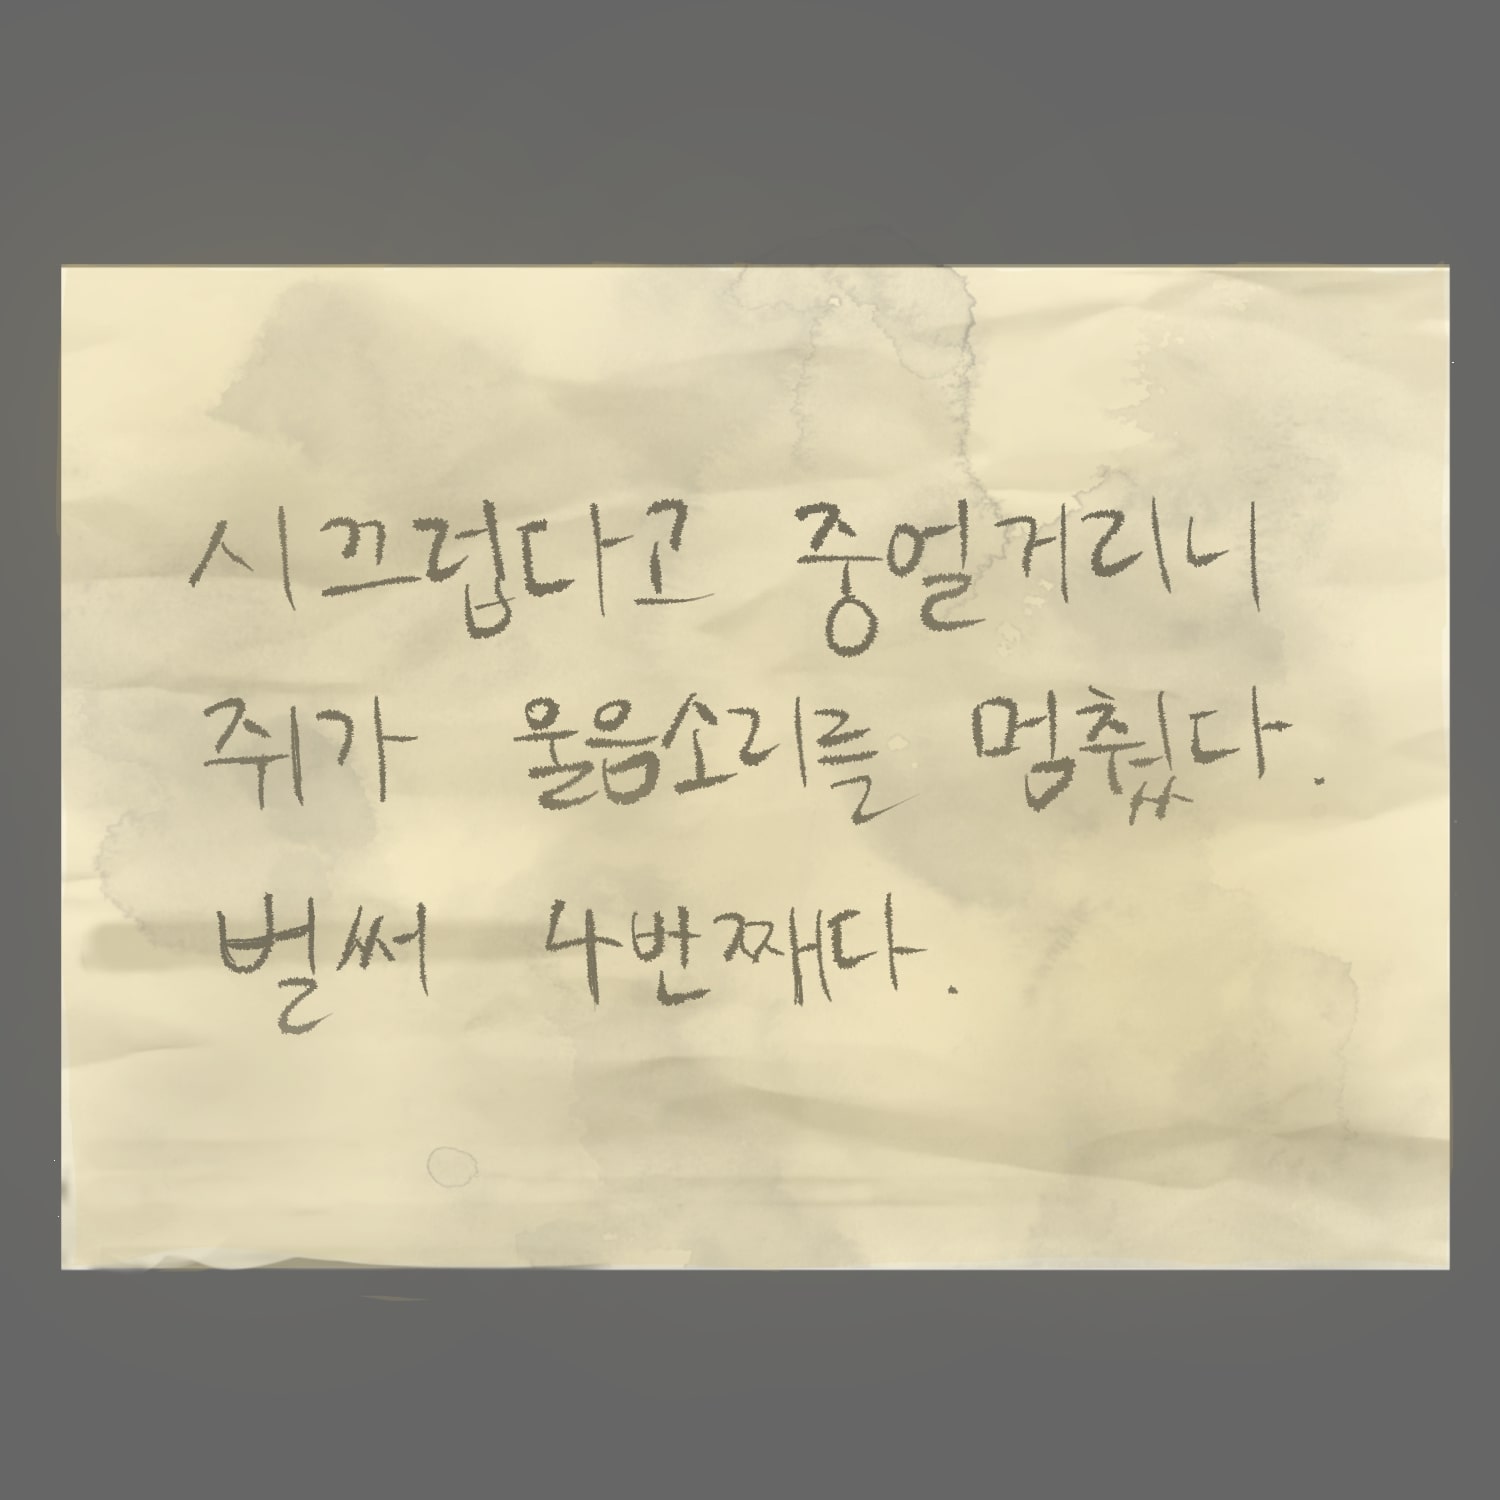 시끄럽다고 중얼거리니
쥐가 울음소리를 멈췄다.
벌써 4번째다.